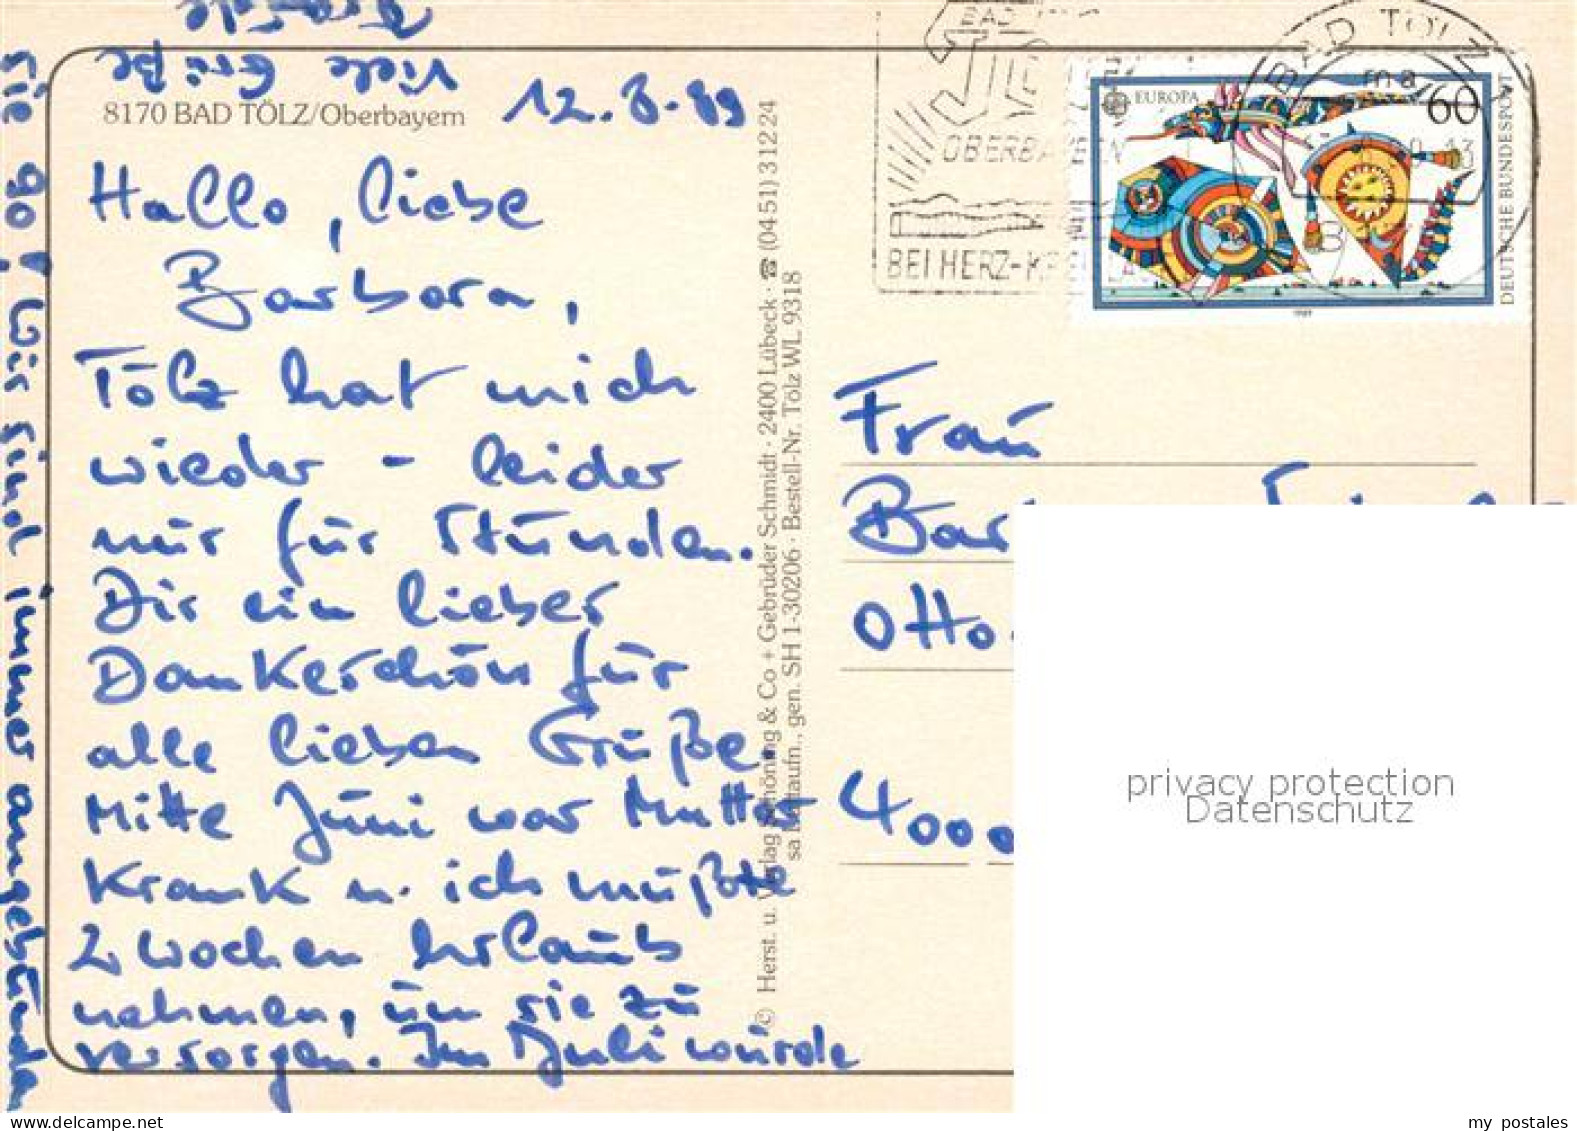 8170 BAD TÖLZ/Oberbayern
12.8.89
Hallo, liebe
Barbara,
Tölz hat mich
wieder - leider
nur für Stunden.
Dir ein lieber
Dankeschön für
alle lieben Grüße.
Mitte Juni war Mutter
krank u. ich mußte
2 Wochen Urlaub
nehmen, um sie zu
versorgen. Im Juli wurde
sie 90! Wir sind immer angebunden
Viele Grüße
© Herst. u. Verlag Schöning & Co + Gebrüder Schmidt · 2400 Lübeck · ☎ (04 51) 3 12 24
gen. SH 1-30206 · Bestell-Nr. Tölz WL 9318
BAD
OBERBA
BEI HERZ-KRE
BAD TÖLZ
EUROPA
60
DEUTSCHE BUNDESPOST
1989
Frau
Bar
Otto
4000
privacy protection
Datenschutz
my postales